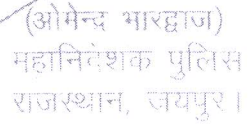 (ओमेन्द्र भारद्वाज)
महानिदेशक पुलिस
राजस्थान, जयपुर।